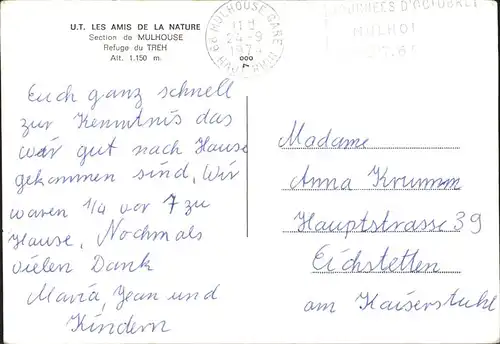 U.T. LES AMIS DE LA NATURE
Section de MULHOUSE
Refuge du TREH
Alt. 1.150 m.
68 MULHOUSE GARE
24-9
HAUT-RHIN
JOURNEES D'OCTOBRE
Euch ganz schnell
zur Kenntnis das
wir gut nach Hause
gekommen sind, Wir
waren 1/4 vor 7 zu
Hause. Nochmals
vielen Dank
Maria, Jean und
Kindern
Madame
Anna Krumm
Hauptstrasse 39
Eichstetten
am Kaiserstuhl